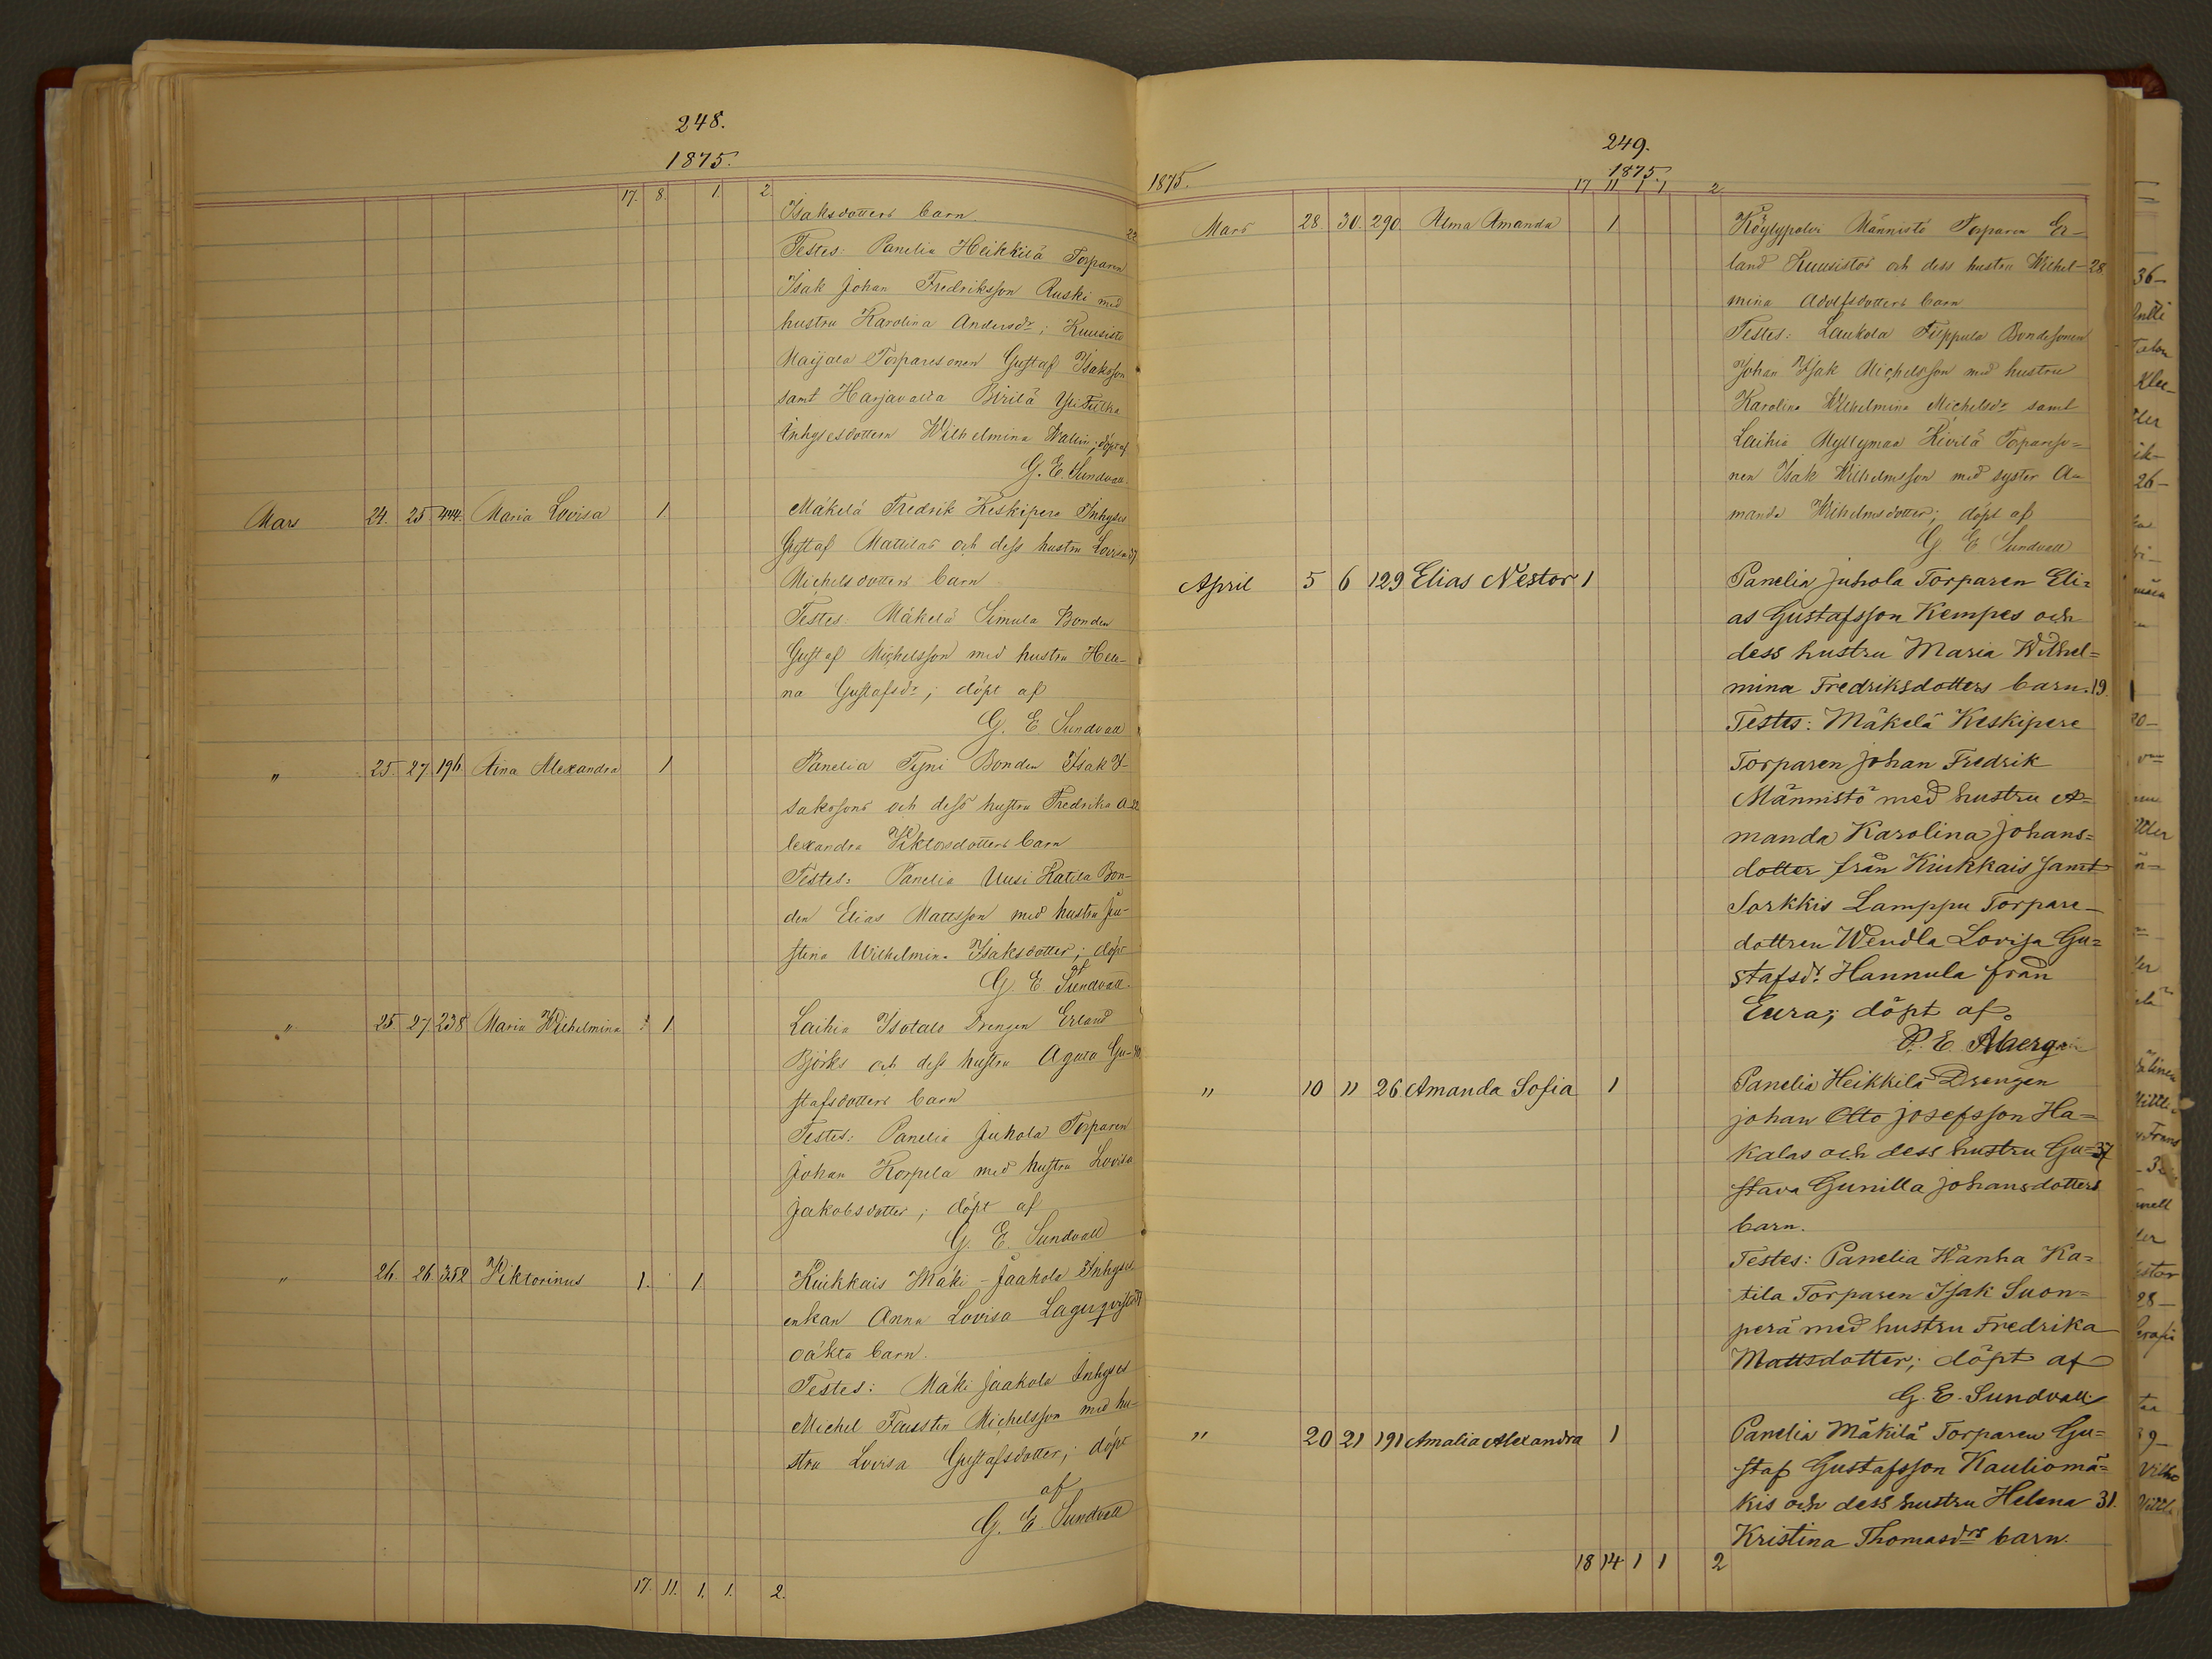 248.
1875.
17. 8. 1. 2.
Isaksdotters barn
22
Testes: Panelia Heikkilä Torparen
Isak Johan Fredriksson Ruski med
hustru Karolina Andersdr; Kuusisto
Maijala Torparesonen Gustaf Isaksson
samt Harjavalta Pirilä
Inhysesdottern Wilhelmina Wallin; döpt af
G. E. Sundvall.
Mars 24. 25. 444. Maria Lovisa 1. Mäkelä Fredrik Keskipere Inhyses
Gustaf Mattilas och dess hustru Lovisa 37
Michelsdotters barn
Testes: Mäkelä Simula Bonden
Gustaf Michelsson med hustru Hele-
na Gustafsdr; döpt af
G. E Sundvall
" 25 27 196 Aina Alexandra 1 Panelia Tyni Bonden Isak I-
sakssons och dess hustru Fredrika A- 22
lexandra Viktorsdotters barn
Testes: Panelia Uusi Katila Bon-
den Elias Mattsson med hustru Ju-
stina Wilhelmina Isaksdotter; döpt
af
G. E. Sundvall.
" 25 27 238 Maria Wilhelmina 1 Laihia Isotalo Drengen Erland
Björks och dess hustru Agata Gu- 40
stafsdotters barn
Testes: Panelia Juhola Torparen
Johan Korpela med hustru Lovisa
Jakobsdotter; döpt af
G. E. Sundvall
" 26. 26. 352 Viktorinus 1. 1 Kiukkais Mäki-Jaakola Inhyses
enkan Anna Lovisa Lagerqvists
oäkta barn.
Testes: Mäki Jaakola Inhyses
Michel Faustin Michelsson med hu-
stru Lovisa Gustafsdotter; döpt
af
G. E. Sundvall
17. 11. 1. 1. 2.
249.
1875
1875.
17 11 1 1 2
Mars 28. 30. 290. Alma Amanda 1 Köylypolvi Männistö Torparen Er-
land Kuusistos och dess hustru Wilhel- 28
mina Adolfsdotters barn
Testes: Laukola Filppula Bondesonen
Johan Isak Michelsson med hustru
Karolina Wilhelmina Michelsdr samt
Laihia Myllymaa Kivilä Torpareso=
nen Isak Wilhelmsson med syster A-
manda Wilhelmsdotter; döpt af
G E Sundvall
April 5 6 129 Elias Nestor 1 Panelia Juhola Torparen Eli=
as Gustafsson Kempes och
dess hustru Maria Wilhel=
mina Fredriksdotters barn. 19.
Testes: Mäkelä Keskipere
Torparen Johan Fredrik
Männistö med hustru A=
manda Karolina Johans=
dotter från Kiukkais samt
Sorkkis Lamppu Torpare-
dottren Wendla Lovisa Gu=
stafsdr Hannula från
Eura; döpt af
P. E. Åberg
" 10 11 26. Amanda Sofia 1 Panelia Heikkilä Drengen
Johan Otto Josefsson Ha=
kalas och dess hustru Gu= 37
stava Gunilla Johansdotters
barn.
Testes: Panelia Wanha Ka=
tila Torparen Isak Suon=
perä med hustru Fredrika
Mattsdotter; döpt af
G. E. Sundvall.
" 20 21 191 Amalia Alexandra 1 Panelia Mäkilä Torparen Gu=
staf Gustafsson Kauliomä=
kis och dess hustru Helena 31.
Kristina Thomasdrs barn.
18 14 1 1 2